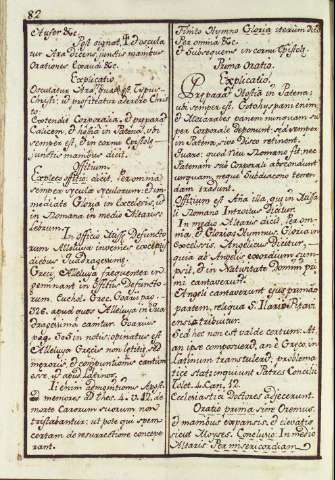 82
Aufer &c.
Post signat, & oscula-
tur Ara dicens, junctis manibus
Orationes Exaudi &c.
Explicatio
Osculatur Ara, quae est Typus
Christi: ut profiteatur
Extendit Corporalia, & praeparat
Calicem, & hostia in Patena, ubi
semper est, & in cornu Epistolae
junctis manibus dicit.
Offitium.
Expleto offitio dicit, Per omnia
semper secula seculorum: & im-
mediate Gloria in Excelsis, id
in Romana in medio Altaris ele-
In Officio Missae Defuncto-
rum Alleluja invenies exceptis
diebus Quadragesimae.
Graeci Alleluja frequenter in-
geminant in Offitiis Defuncto-
rum. Euchol. Graec. Goarus pag.
526. apud quos Alleluja in Qua
dragesima cantur. Goarus
pag. in notis, opinatus est
Alleluja Graecis non letitiae, sed
memoris, & compunctionis cantum
esse, ut apud Latinos.
Ii enim admonitionis Apost.
memores ad Thes. 4. v. 12. de
morte Carorum suorum non
tristabantur: ut pote qui spem
certam de resurectione concepe
rant.
Finito Hymno Gloria iterum dicit
Per omnia &c.
& Subsequens in cornu Epistolae.
Prima Oratio.
Explicatio.
Praeparat Hostia in Patena:
ubi semper est. Gothus panem enim,
& Mozarabes panem nunquam su-
per Corporale deponunt, sed semper
in Patena, sive Disco retinent.
Quare: quod sicut Romani fit, nec
Patenam sub Corporali abscondunt
unquam, neque Subdiacono tenen-
dam tradunt.
Offitium est Ana illa, quae in Missa-
li Romano Introitus dicitur.
In medio Altaris dicit, Per om-
nia, & Glorias Hymnus. Gloria in
excelsis. Angelicus dicitur,
quia ab Angelis exordium sum-
psit, & in Nativitate Domini pri-
mi cantaverunt.
Angeli cantaverunt ejus primam
partem, reliqua S. Ilario Pictavi
ensi tribuitur.
Sed haec non est valde certum: At
an ipse composuerit, an è Graeco in
Latinum transtulerit, problema-
tice stat; inquiunt Patres Concilii
Tolet. 4. Can. 12.
Ecclesiastici Doctores adjecerunt.
Oratio prima sine Oremus.
& manibus expansis, & elevatis
sicut Moyses. Concluditur in medio
Altaris Per misericordiam